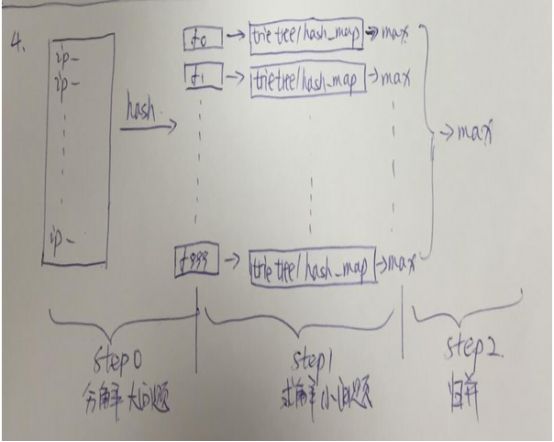 4.
ip-
ip-
ip-
hash
f0 → trie tree/hash_map → max
f1 → trie tree/hash_map → max
f999 → trie tree/hash_map → max
→ max
step0
分解大问题
step1
求解小问题
step2.
归并